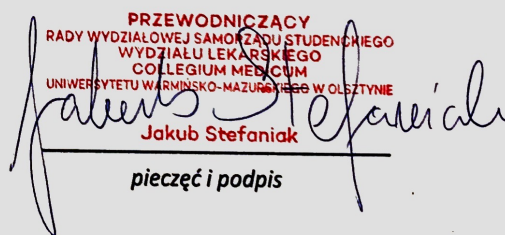 PRZEWODNICZĄCY
RADY WYDZIAŁOWEJ SAMORZĄDU STUDENCKIEGO
WYDZIAŁU LEKARSKIEGO
COLLEGIUM MEDICUM
UNIWERSYTETU WARMIŃSKO-MAZURSKIEGO W OLSZTYNIE
Jakub Stefaniak
Jakub Stefaniak
pieczęć i podpis